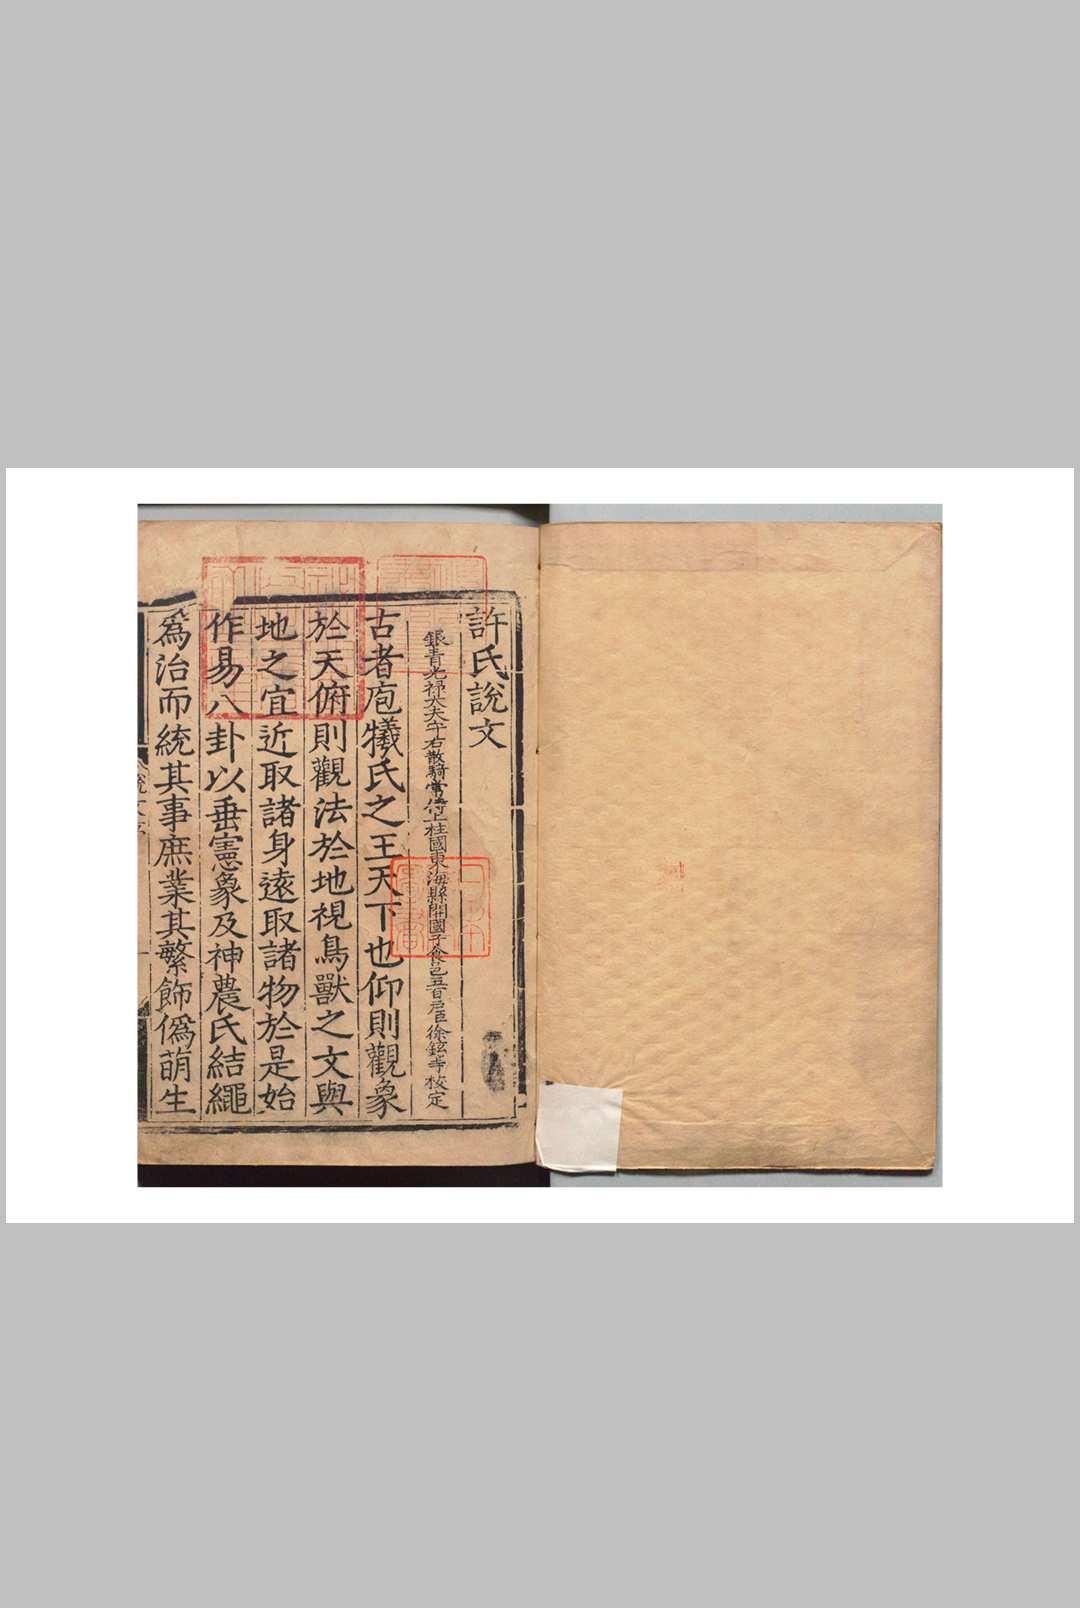 許氏說文
銀青光祿大夫守右散騎常侍上柱國東海縣開國子食邑五百戶臣徐鉉等校定
古者庖犧氏之王天下也仰則觀象
於天俯則觀法於地視鳥獸之文與
地之宜近取諸身遠取諸物於是始
作易八卦以垂憲象及神農氏結繩
為治而統其事庶業其繁飾偽萌生